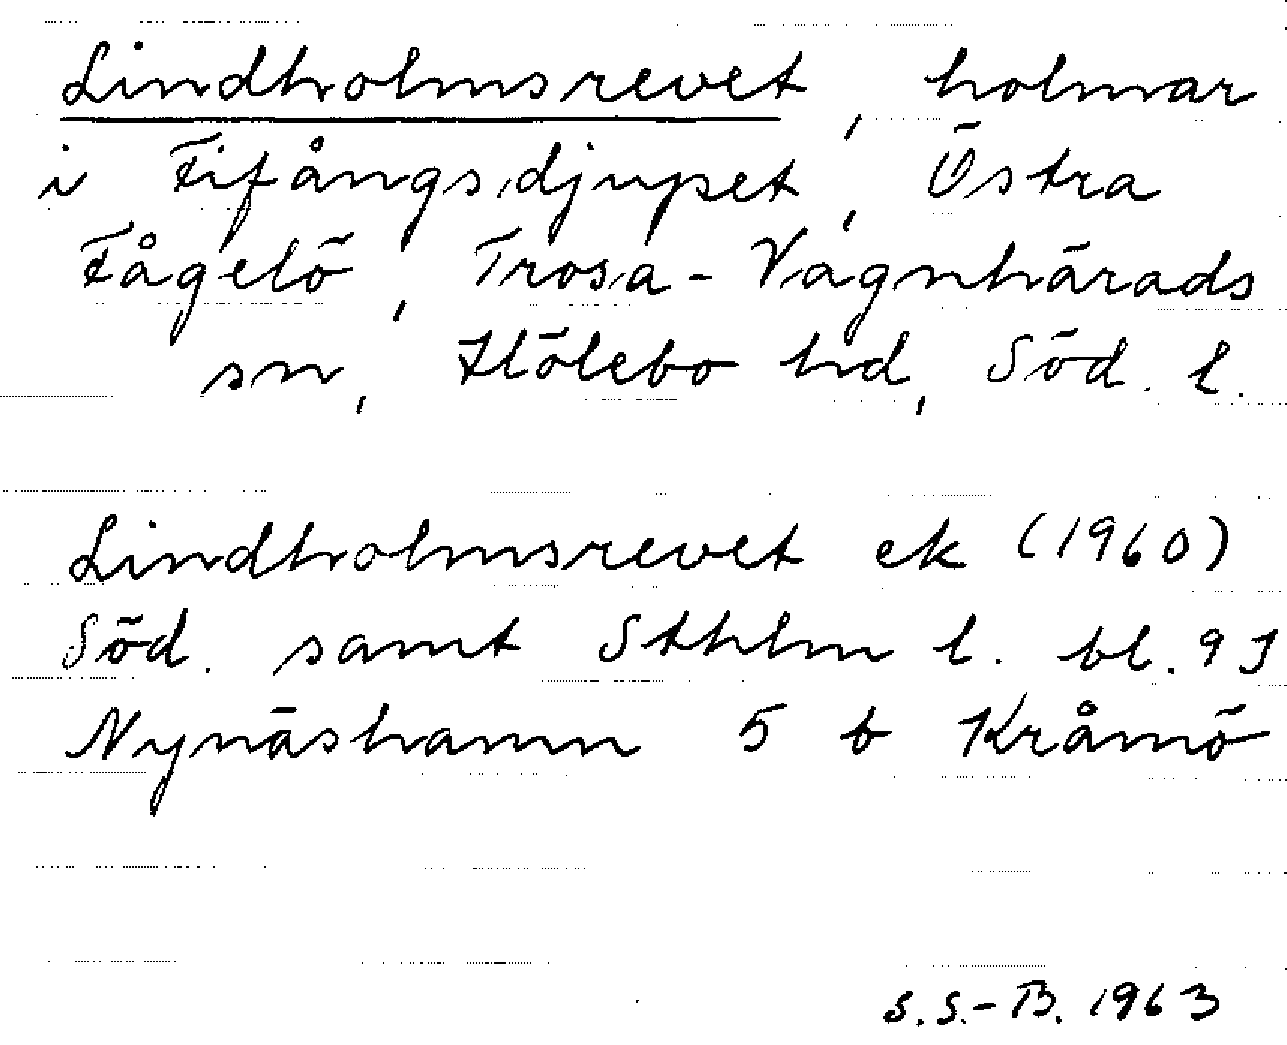 Lindholmsrevet, holmar
i Fifångsdjupet, Östra
Fågelö, Trosa-Vagnhärads
sn, Hölebo hd, Söd. l.
Lindholmsrevet ek (1960)
Söd. samt Sthlm l. bl. 9 I
Nynäshamn 5 b Kråmö
S. S.-B. 1963